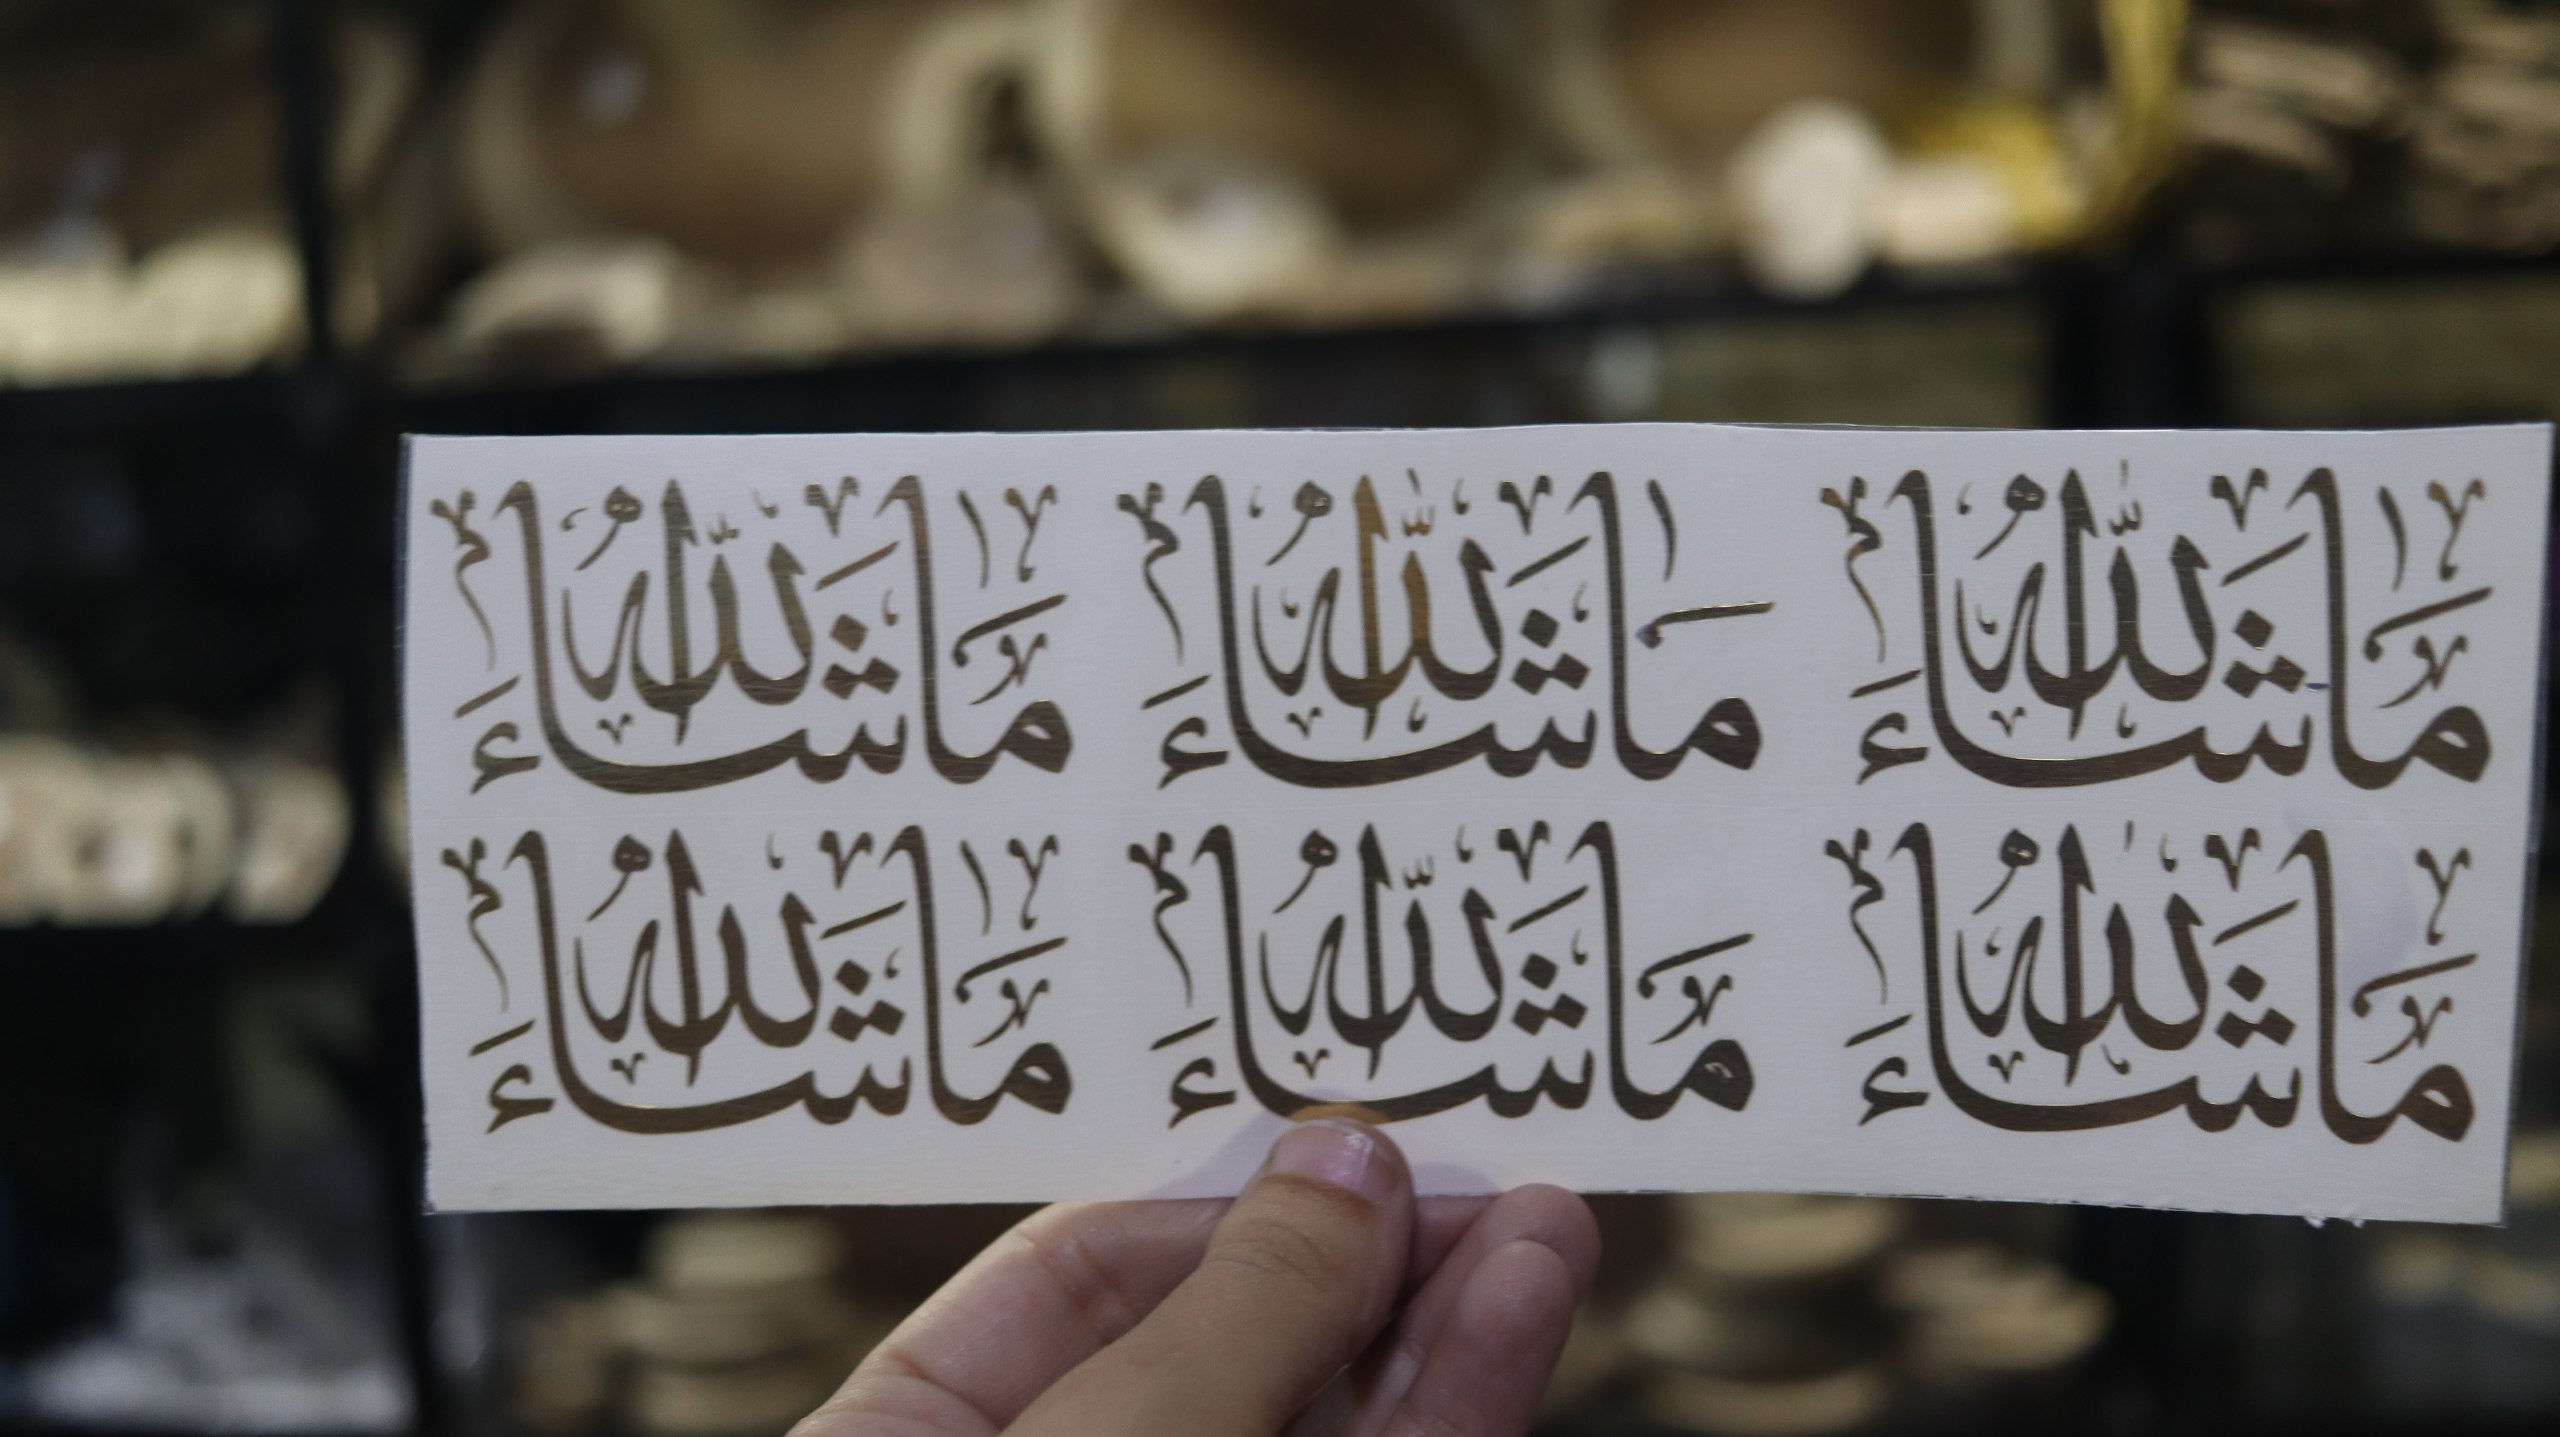 ما شاء الله ما شاء الله ما شاء الله
ما شاء الله ما شاء الله ما شاء الله